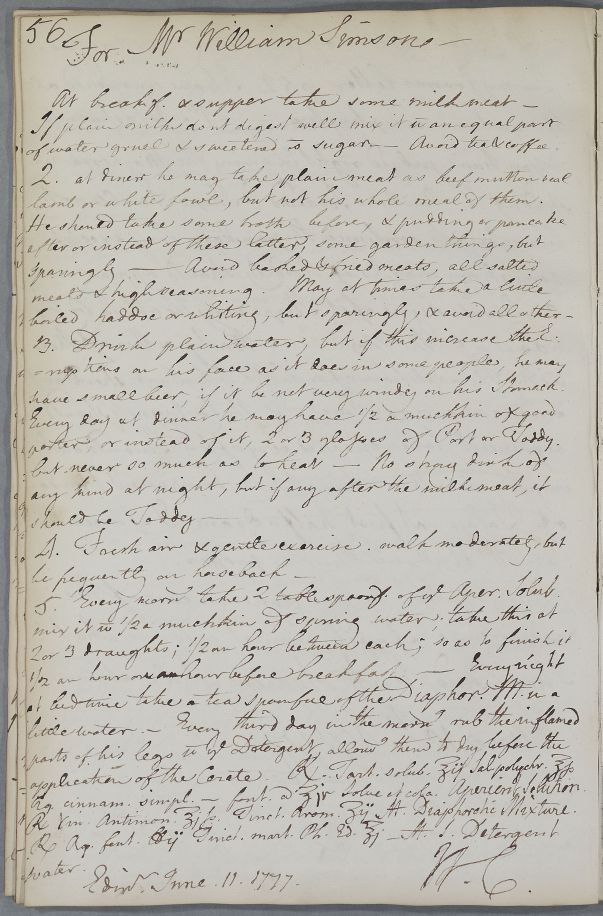 56
For Mr William Simson
At breakf. & supper take some milk meat —
If plain milk dont digest well mix it wt an equal part
of water gruel & sweetened wt sugar — Avoid tea & coffee.
2. at diner he may take plain meat as beef mutton veal
lamb or white fowl, but not his whole meal of them.
He should take some broth before, & pudding or pancake
after or instead of these latter, some garden things, but
sparingly — Avoid baked & fried meats, all salted
meats & high seasoning. May at times take a little
boiled haddoc or whiting, but sparingly, & avoid all other —
3. Drink plain water, but if this increase the E-
=ruptions on his face as it does in some people, he may
have small beer, if it be not very windy on his Stomach.
Every day at dinner he may have 1/2 a muchkin of good
porter, or instead of it, 2 or 3 glasses of Port or Toddy.
but never so much as to heat — No strong drink of
any kind at night, but if any after the milk meat, it
should be Toddy —
4. Fresh air & gentle exercise. walk moderately, but
be frequently on horseback —
5. Every morng take 2 table spoonf. of ye Aper. Solut.
mix it wt 1/2 a muchkin of spring water. take this at
2 or 3 draughts; 1/2 an hour between each; so as to finish it
1/2 an hour or an hour before breakfast — Every night
at bed time take a tea spoonful of the Diaphor. M. in a
little water — Every third day in the morng rub the inflamed
parts of his legs wt ye Detergent, allowg them to dry before the
application of the Cerate. ℞. Tart. solub. ʒij Sal polychr. ʒfs
Aq. cinnam. simpl. — font. a ʒjv solve et cola. Aperient Solution.
℞ Vin. Antimon. ʒjfs. Tinct. Arom. ʒij M. Diapporetic Mixture.
℞ Aq. font. ij Tinct. mart. Ph. Ed. ʒj — M. Detergent
water.
Edinr. June. 11. 1777.
W. C.